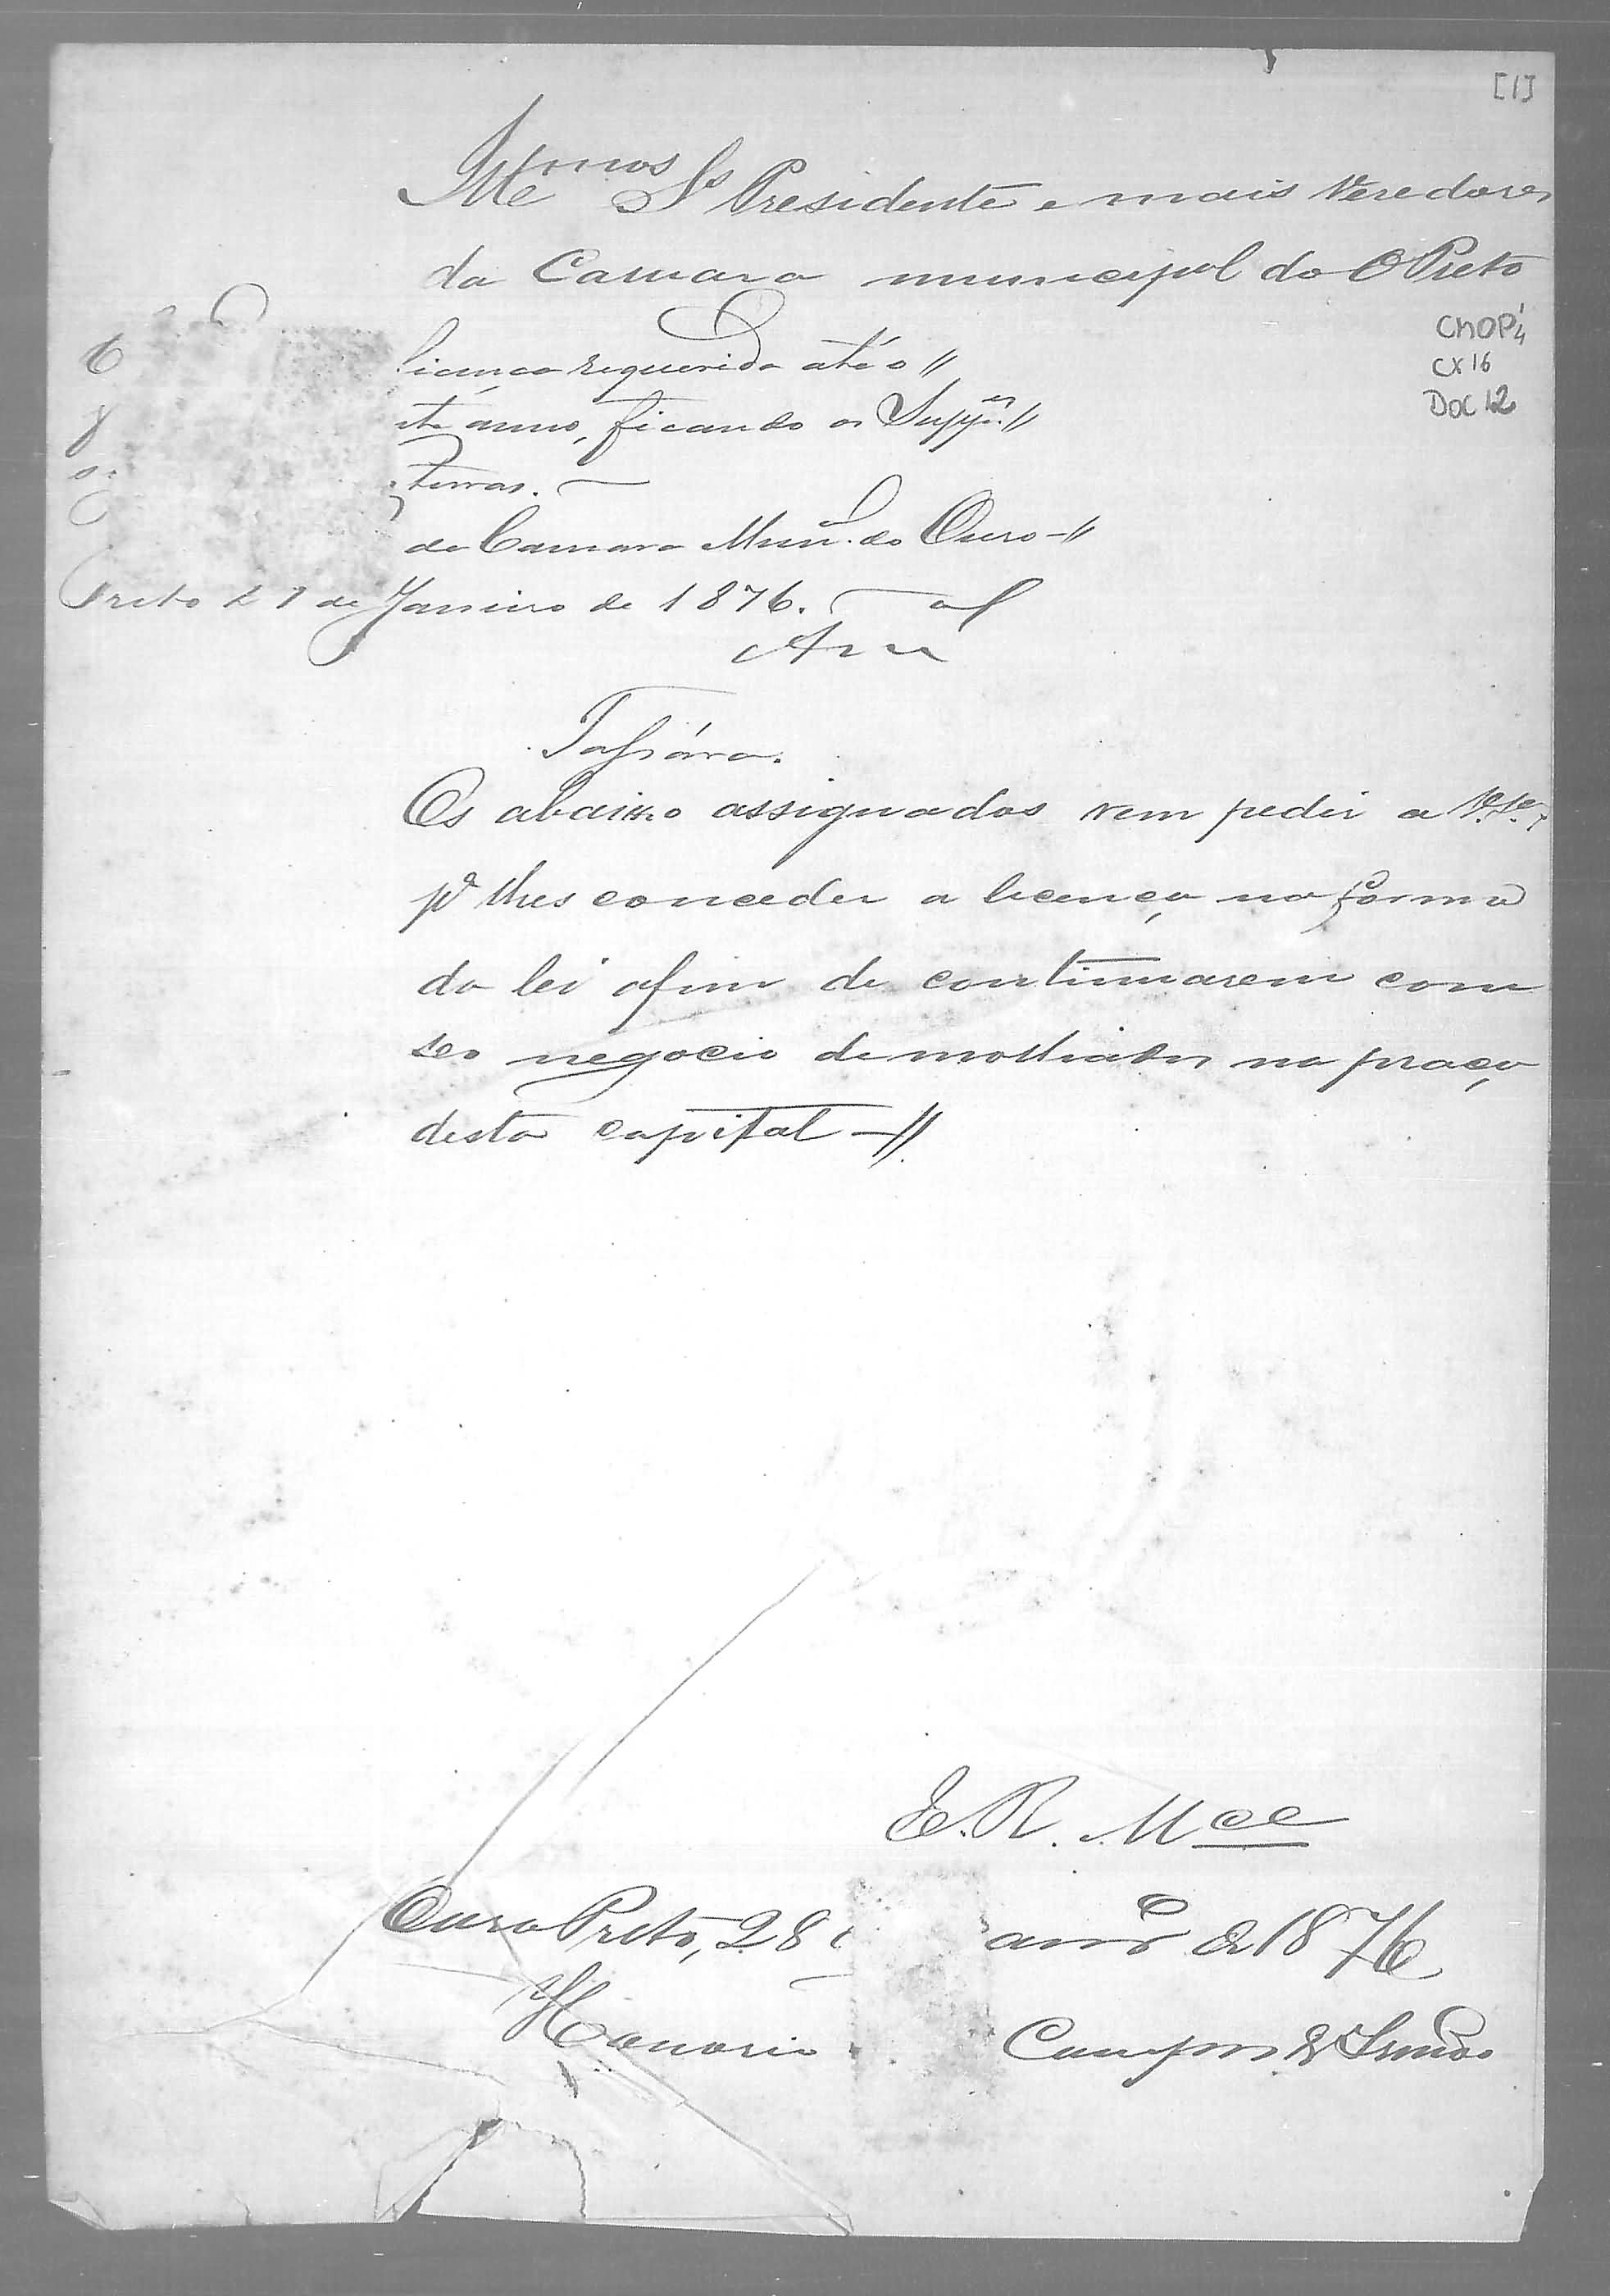 [1]
Illmos Srs Presidente e mais Veredores
da Camara municipal do OPreto
CMOP
CX 16
DOC 12
licença requerida até o //
anno, ficando os Suppes. //
da Camara Mun. do Ouro //
Preto 27 de Janeiro de 1876.
Os abaixo assignados vem pedir a V. Sas
pa lhes conceder a licença na forma
da lei afim de continuarem com
seo negocio de molhados na praça
desta capital //
E. R. Mce
Ouro Preto, 28 de 1876
Honorio Campos & Irmão